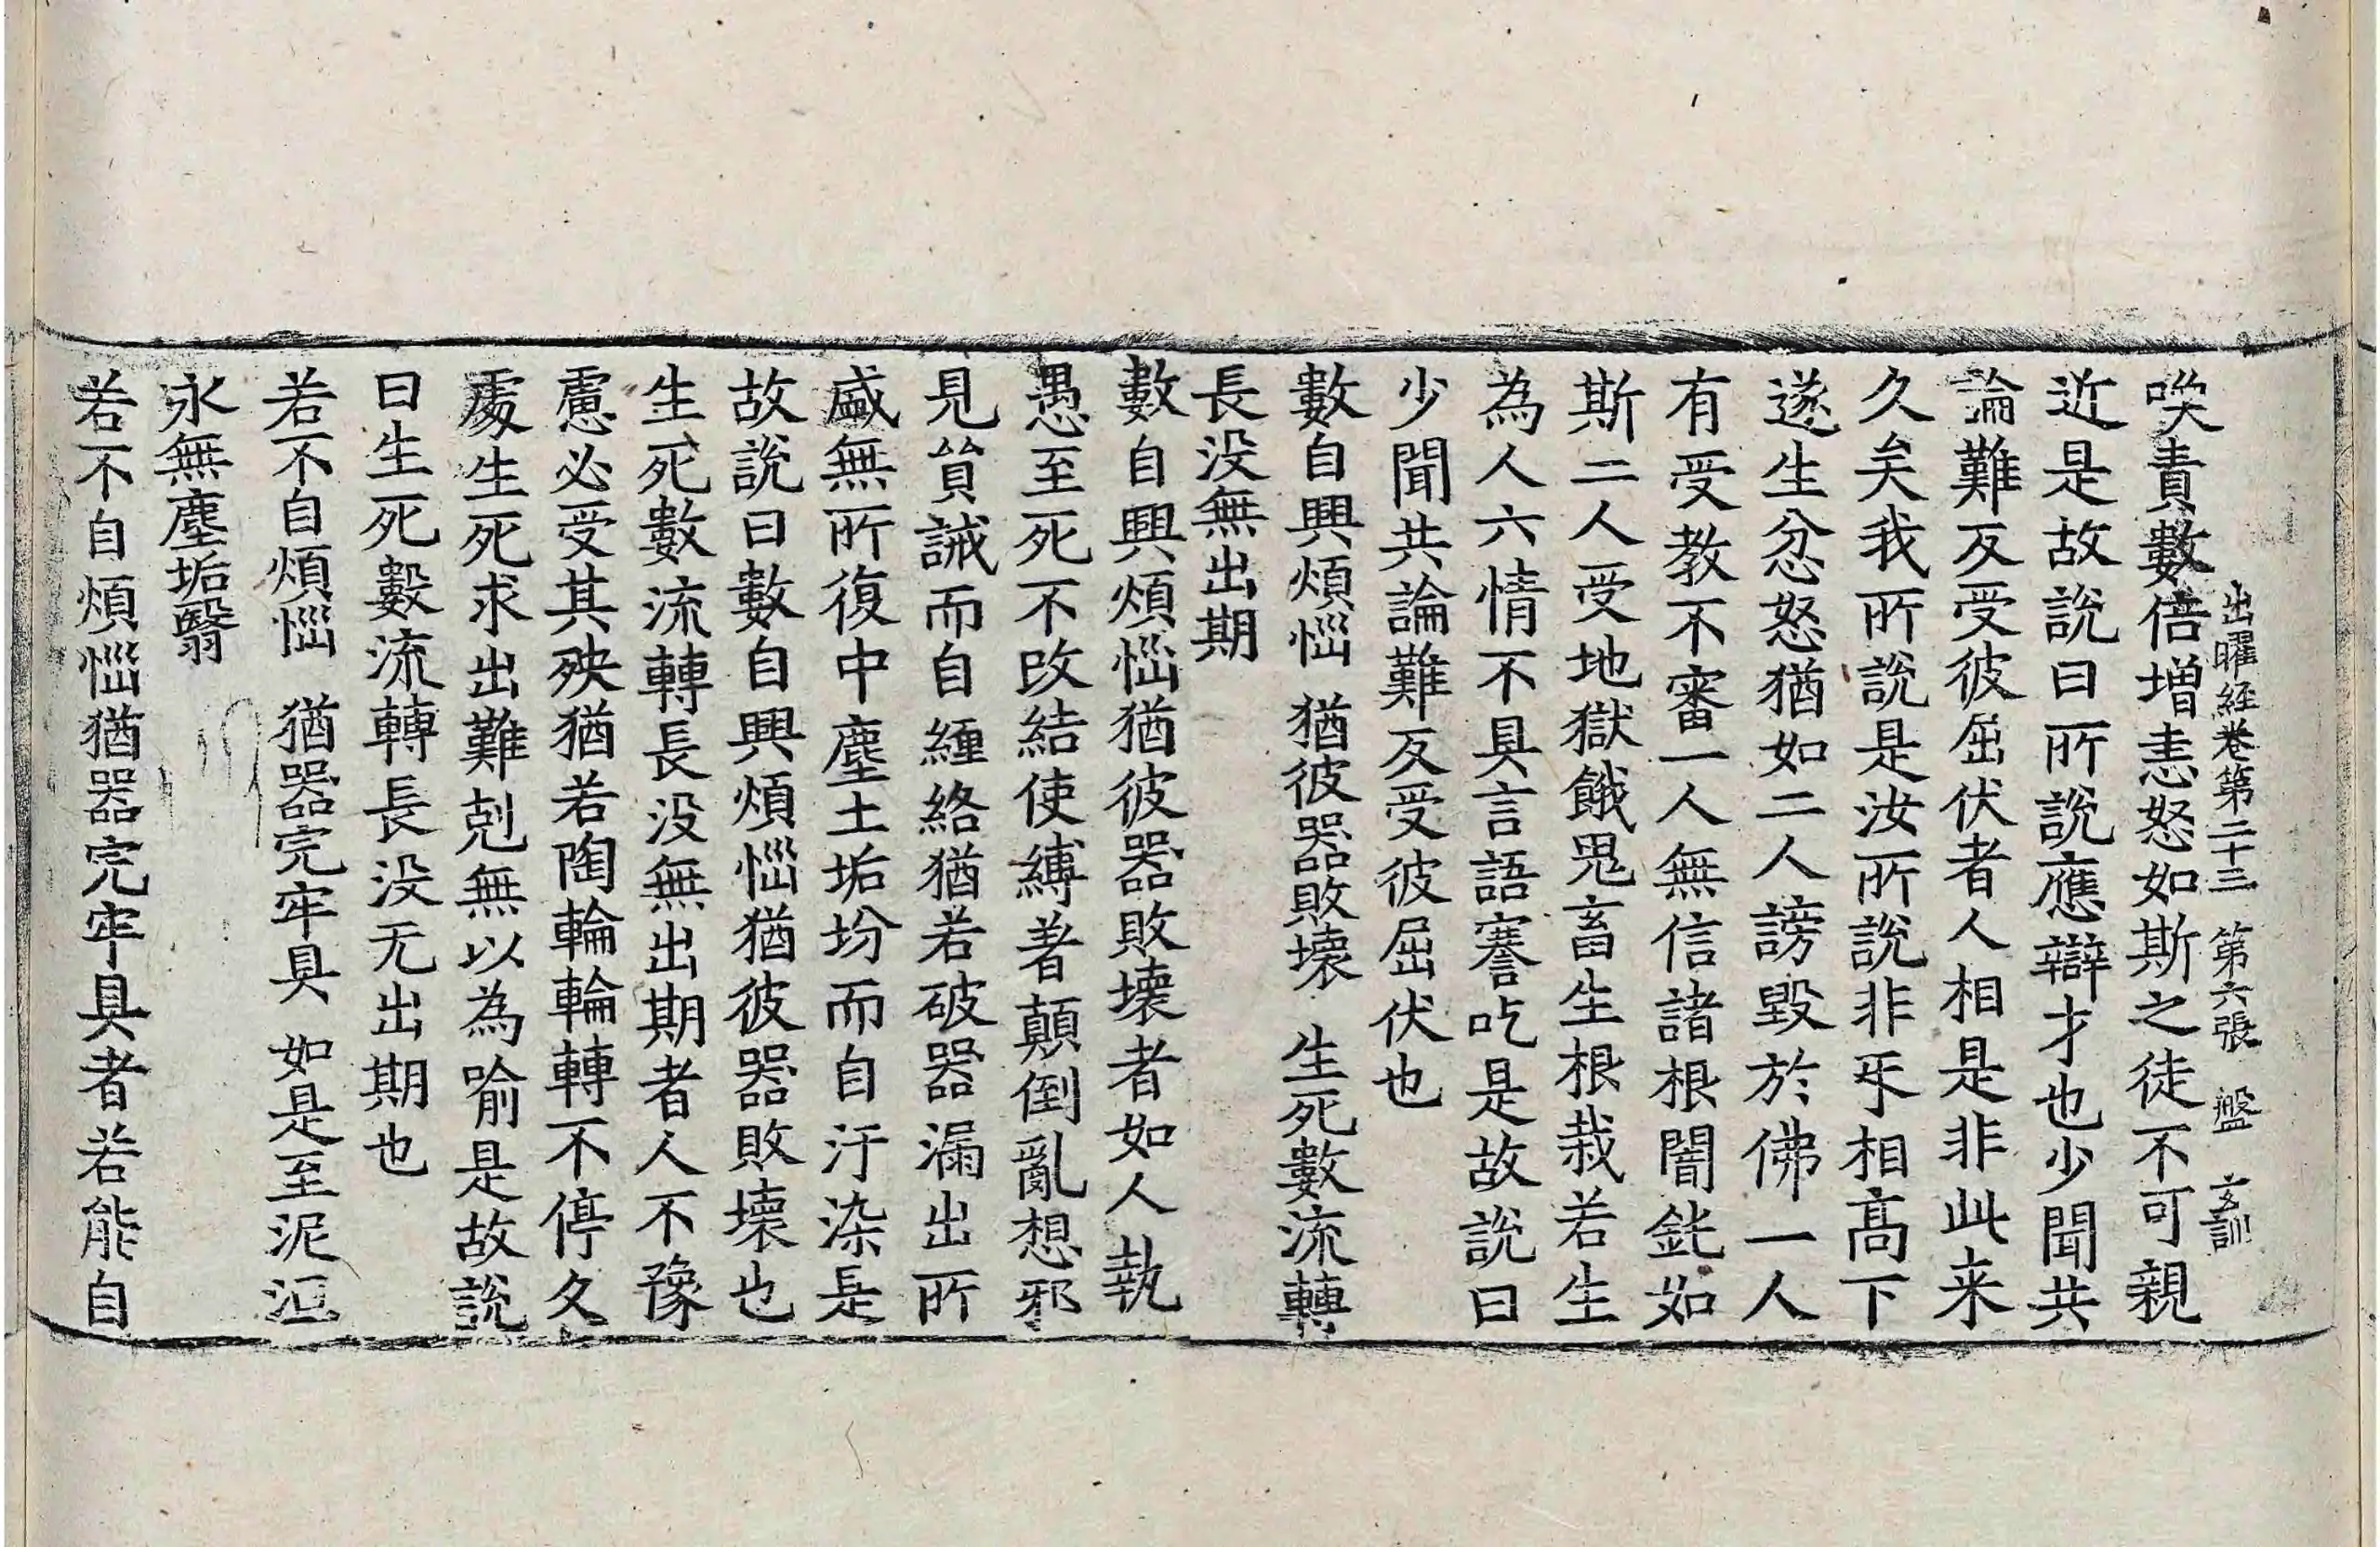 出曜経卷第二十三 第六張 盤 玄訓
喚責數倍增恚怒如斯之徒不可親
近是故説曰所説應辯才也少聞共
論難反受彼屈伏者人相是非此来
久矣我所説是汝所説非𠄔相髙下
遂生忿怒猶如二人謗毀於佛一人
有受教不審一人無信諸根闇鈍如
斯二人受地獄餓鬼畜生根栽若生
為人六情不具言語謇吃是故説曰
少聞共論難反受彼屈伏也
數自興煩惱 猶彼器敗壞 生死數流轉
長没無出期
數自興煩惱猶彼器敗壞者如人執
愚至死不改結使縛著顛倒亂想邪
見貿誡而自纏絡猶若破器漏出所
盛無所復中塵土垢坋而自汙染是
故説曰數自興煩惱猶彼器敗壞也
生死數流轉長没無出期者人不豫
慮必受其殃猶若陶輪輪轉不停久
處生死求出難剋無以為喻是故説
曰生死數流轉長没无出期也
若不自煩惱 猶器完牢具 如是至泥洹
永無塵垢翳
若不自煩惱猶器完牢具者若能自